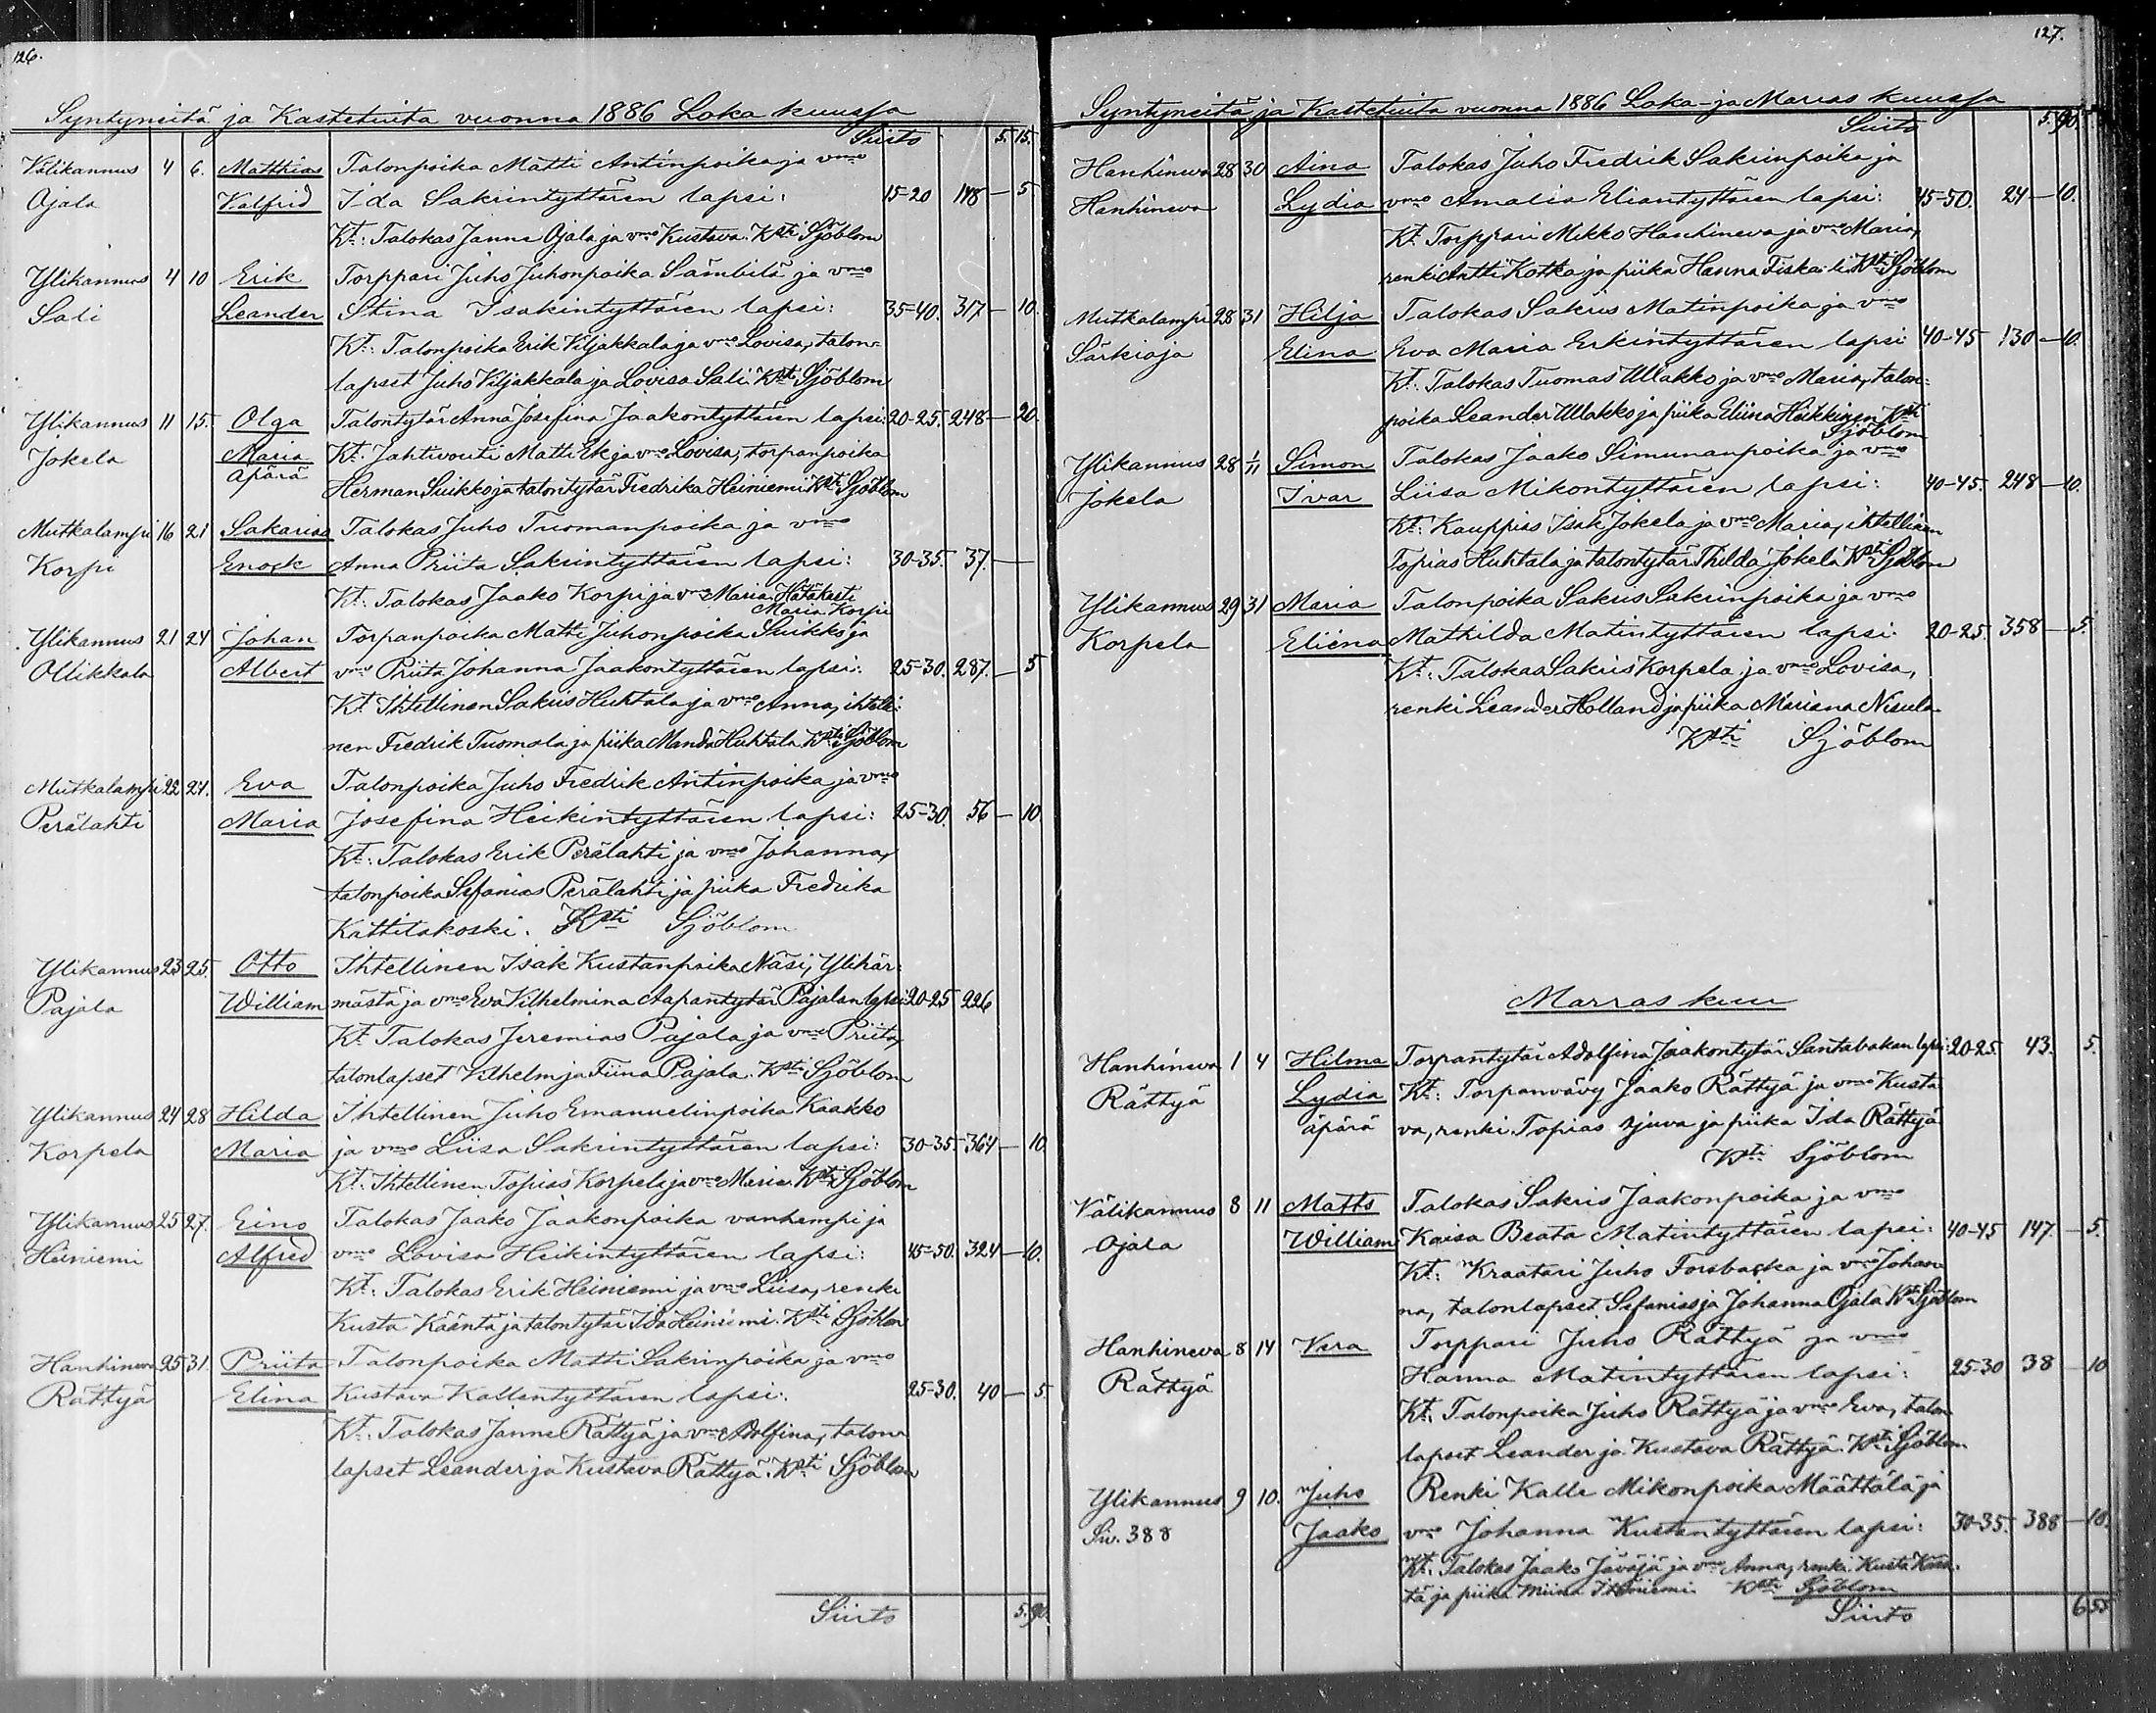 126.
Syntyneitä ja Kastetuita vuonna 1886 Loka kuussa
Siirto 5. 15.
Välikannus 4 6. Matthias Talonpoika Matti Antinpoika ja vmo
Ojala Valfrid Ida Sakrintyttären lapsi: 15-20 148 — 5
Kt: Talokas Janne Ojala ja vmo Kustava. Ksti Sjöblom
Ylikannus 4 10 Erik Torppari Juho Juhonpoika Sämbilä ja vmo
Sali Leander Stina Isakintyttären lapsi: 35-40. 317 — 10.
Kt: Talonpoika Erik Viljakkala ja vmo Lovisa, talon-
lapset Juho Viljakkala ja Lovisa Sali. Ksti Sjöblom
Ylikannus 11 15. Olga Talontytär Anna Josefina Jaakontyttären lapsi: 20-25. 248 — 20.
Jokela Maria Kt: Jahtivouti Matti Ek ja vmo Lovisa, torpanpoika
äpärä Herman Suikko ja talontytär Fredrika Heiniemi Ksti Sjöblom
Mutkalampi 16 21 Sakarias Talokas Juho Tuomanpoika ja vmo
Korpi Enock Anna Priita Sakrintyttären lapsi: 30-35. 37. —
Kt: Talokas Jaako Korpi ja vmo Maria
Maria Korpi
Ylikannus 21 24 Johan Torpanpoika Matti Juhonpoika Suikko ja
Ollikkala Albert vmo Priita Johanna Jaakontyttären lapsi: 25-30. 287. — 5
Kt Ihtellinen Sakris Huhtala ja vmo Anna, ihtelli-
nen Fredrik Tuomala ja piika Manda Huhtala Ksti Sjöblom
Mutkalampi 22 24. Eva Talonpoika Juho Fredrik Antinpoika ja vmo
Perälahti Maria Josefina Heikintyttären lapsi: 25-30. 56 — 10.
Kt: Talokas Erik Perälahti ja vmo Johanna,
talonpoika Sefanias Perälahti ja piika Fredrika
Kättilakoski. Ksti Sjöblom
Ylikannus 23 25. Otto Ihtellinen Isak Kustanpoika Näsi, Ylihär-
Pajala William mästä ja vmo Eva Vilhelmina Aapantytär Pajalan lapsi 20-25 226
Kt Talokas Jeremias Pajala ja vmo Priita,
talonlapset Vilhelm ja Fiina Pajala. Ksti Sjöblom
Ylikannus 24 28 Hilda Ihtellinen Juho Emanuelinpoika Kaakko
Korpela Maria ja vmo Liisa Sakrintyttären lapsi: 30-35. 364 — 10.
Kt: Ihtellinen Topias Korpela ja vmo Maria. Ksti Sjöblom
Ylikannus 25 27. Eino Talokas Jaako Jaakonpoika vanhempi ja
Heiniemi Alfred vmo Lovisa Heikintyttären lapsi: 45-50. 324 — 10.
Kt: Talokas Erik Heiniemi ja vmo Liisa, renki
Kusta Kääntä ja talontytär Ida Heiniemi. Ksti Sjöblom
Hanhineva 25 31. Priita Talonpoika Matti Sakrinpoika ja vmo
Rättyä Elina Kustava Kallentyttären lapsi: 25-30. 40 — 5
Kt: Talokas Janne Rättyä ja vmo Adolfina, talon
lapset Leander ja Kustava Rättyä. Ksti Sjöblom
Siirto 5. 90.
127.
Syntyneitä ja Kastetuita vuonna 1886 Loka- ja Marras kuussa
Siirto 5. 90.
Hanhineva 28 30 Aina Talokas Juho Fredrik Sakrinpoika ja
Hanhineva Lydia vmo Amalia Eliantyttären lapsi: 45-50. 24 — 10.
Kt. Torppari Mikko Hanhineva ja vmo Maria,
renki Antti Kotka ja piika Hanna Fiskali Ksti Sjöblom
Mutkalampi 28 31 Hilja Talokas Sakris Matinpoika ja vmo
Särkioja Elina Eva Maria Erkintyttären lapsi 40-45 130 — 10.
Kt. Talokas Tuomas Ullakko ja vmo Maria, talon-
poika Leander Ullakko ja piika Eliina Heikkinen Ksti
Sjöblom
Ylikannus 28 1/11 Simon Talokas Jaako Simunanpoika ja vmo
Jokela Ivar Liisa Mikontyttären lapsi: 40-45. 248 — 10.
Kt: Kauppias Isak Jokela ja vmo Maria, ihtellinen
Topias Huhtala ja talontytär Thilda Jokela Ksti Sjöblom
Ylikannus 29 31 Maria Talonpoika Sakris Sakrinpoika ja vmo
Korpela Eliena Mathilda Matintyttären lapsi: 20-25. 358 — 5.
Kt: Talokas Sakris Korpela ja vmo Lovisa,
renki Leander Holland ja piika Mariana Nisula
Ksti Sjöblom
Marras kuu
Hanhineva 1 4 Hilma Torpantytär Adolfina Jaakontytär Santabakan lapsi: 20-25. 43. 5.
Rättyä Lydia Kt: Torpanvävy Jaako Rättyä ja vmo Kusta
äpärä va, renki Topias Njuva ja piika Ida Rättyä
Ksti Sjöblom
Välikannus 8 11 Matts Talokas Sakris Jaakonpoika ja vmo
Ojala William Kaisa Beata Matintyttären lapsi: 40-45 147. — 5.
Kt: Kraatari Juho Forsbacka ja vmo Johan-
na, talonlapset Sefanias ja Johanna Ojala Ksti Sjöblom
Hanhineva 8 14 Vera Torppari Juho Rättyä ja vmo
Rättyä Hanna Matintyttären lapsi: 25-30 38 — 10
Kt. Talonpoika Juho Rättyä ja vmo Eva, talon
lapset Leander ja Kustava Rättyä. Ksti Sjöblom
Ylikannus 9 10. Juho Renki Kalle Mikonpoika Määttälä ja
Siv. 388 Jaako vmo Johanna Kustantyttären lapsi: 30-35. 388 — 10.
Kt. Talokas Jaako Jäväjä ja vmo Anna, renki Kusta Kään-
tä ja piika Miina Itäniemi Ksti Sjöblom
Siirto 6 55